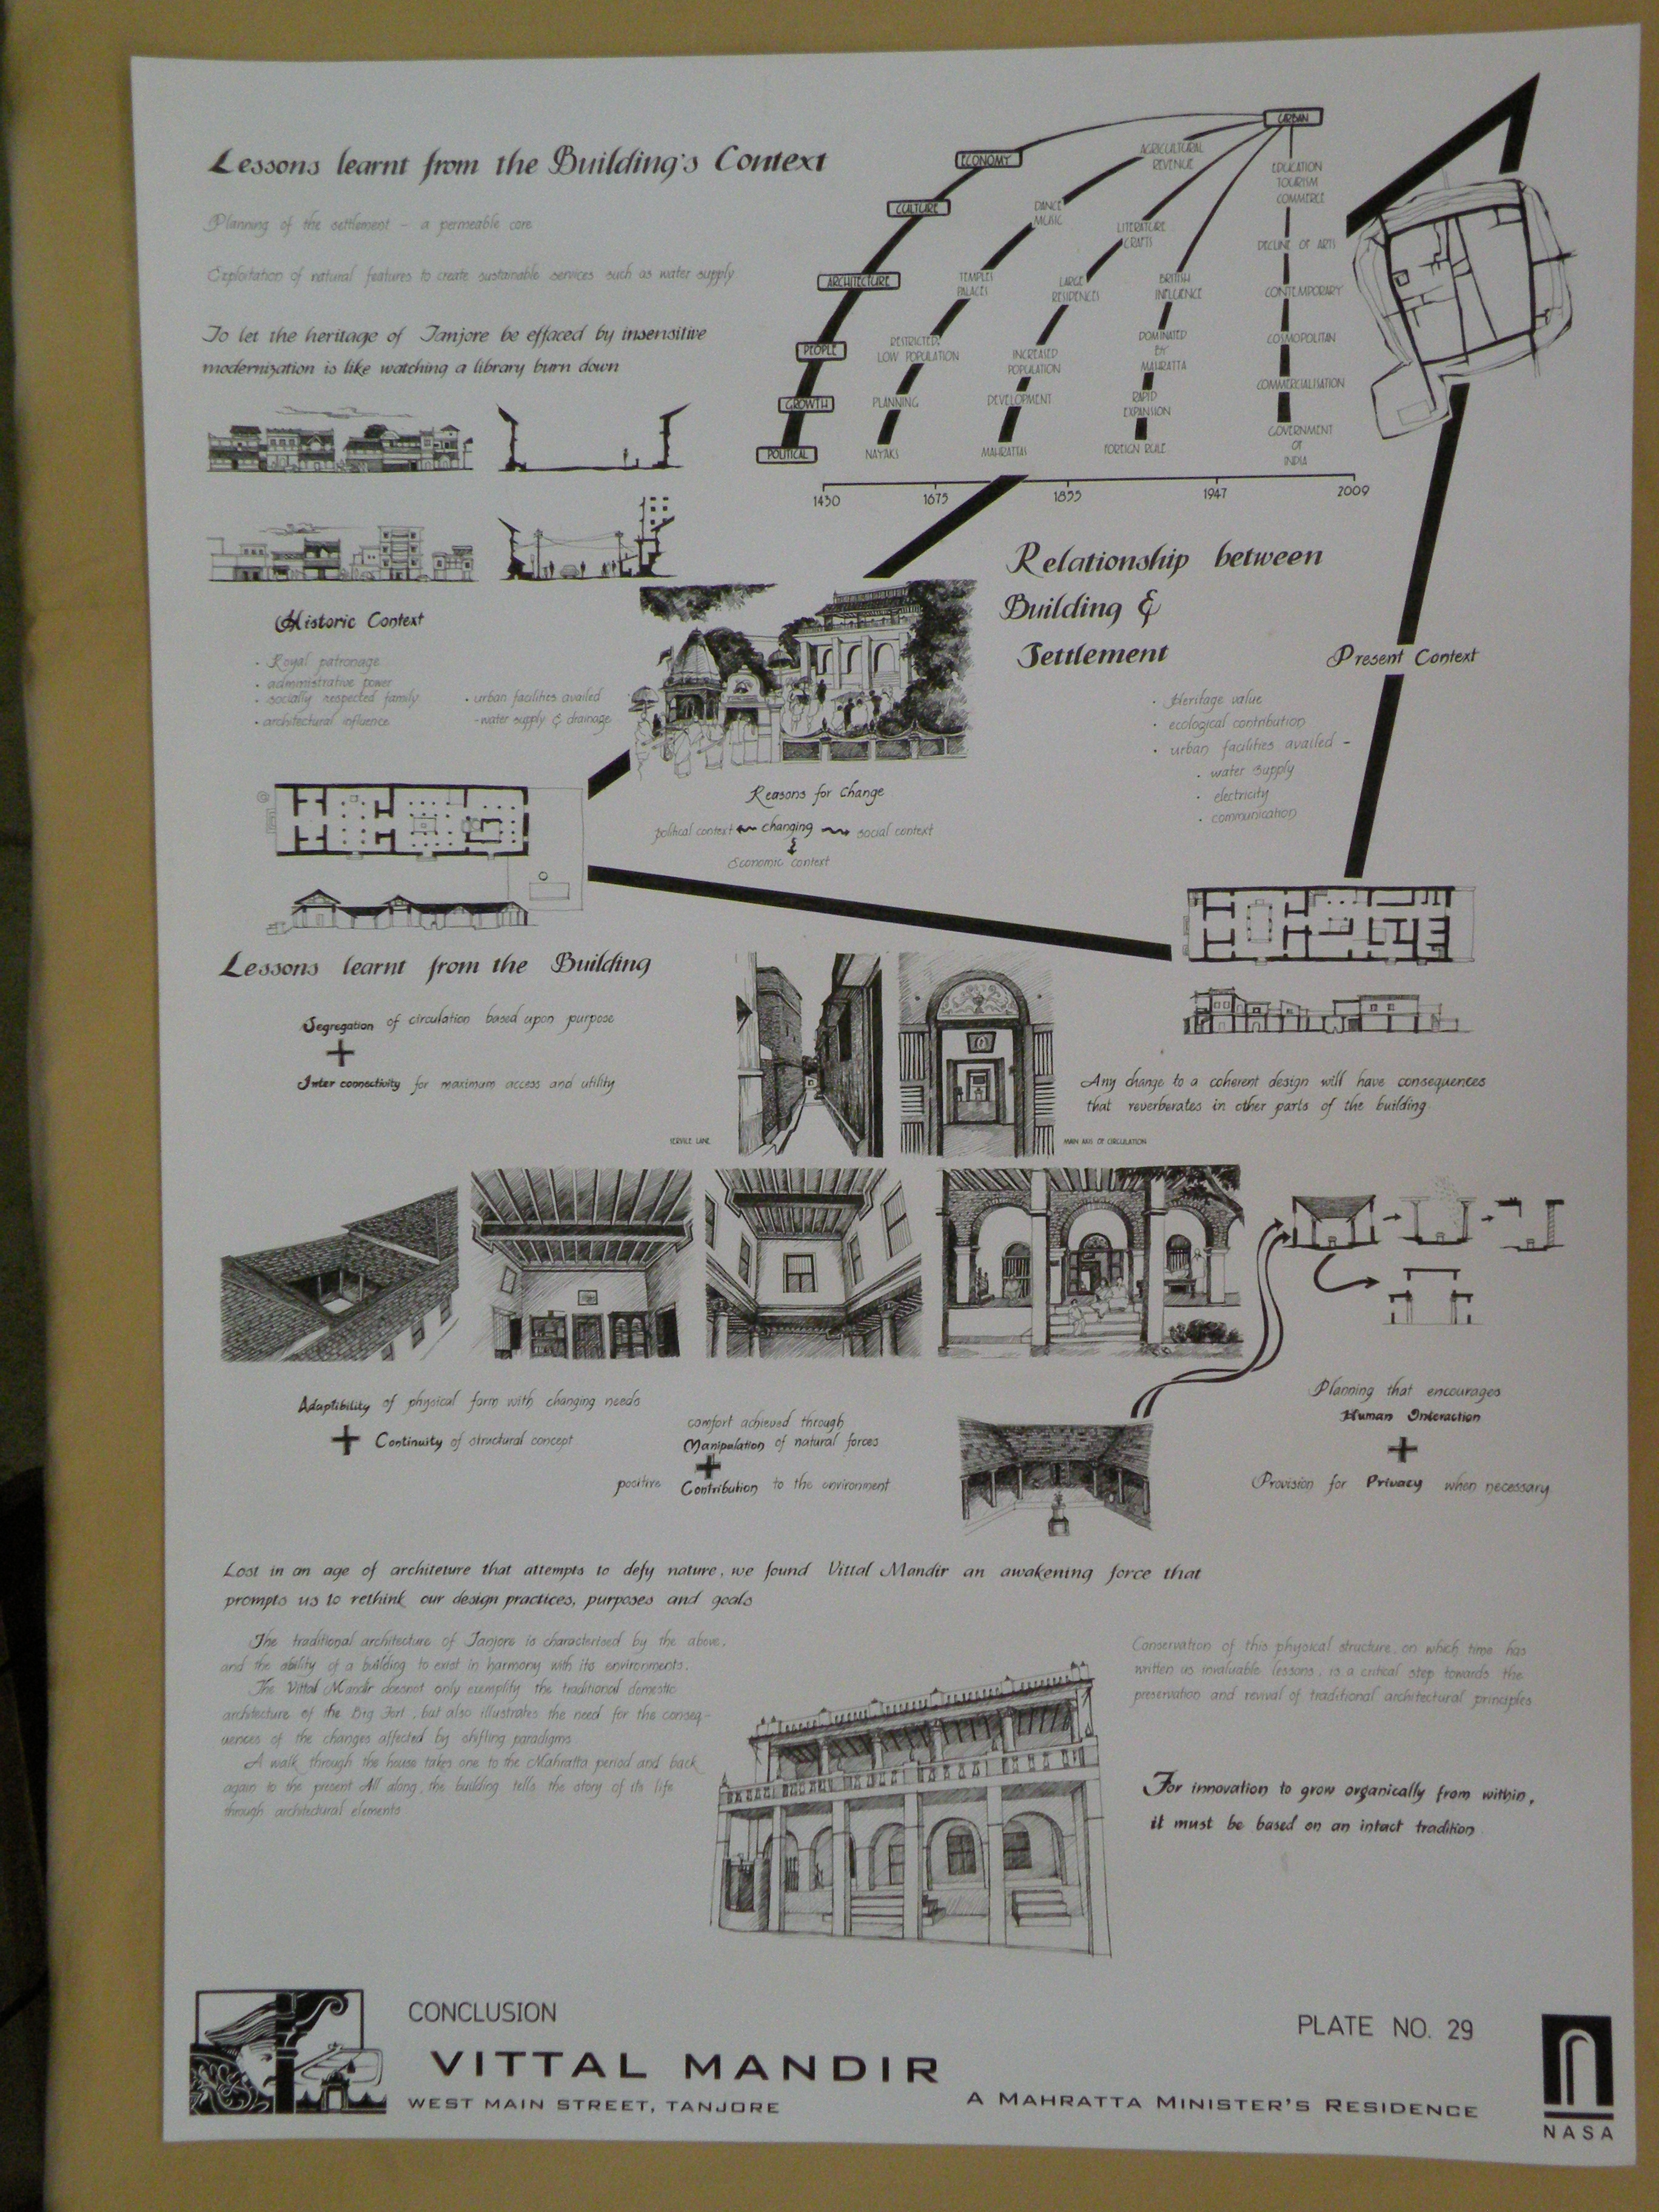 Lessons learnt from the Building's Context
Planning of the settlement – a permeable core
Exploitation of natural features to create sustainable services such as water supply
To let the heritage of Tanjore be effaced by insensitive
modernization is like watching a library burn down
URBAN
ECONOMY
AGRICULTURAL
REVENUE
EDUCATION
TOURISM
COMMERCE
CULTURE
DANCE
MUSIC
LITERATURE
CRAFTS
DECLINE OF ARTS
ARCHITECTURE
TEMPLES
PALACES
LARGE
RESIDENCES
BRITISH
INFLUENCE
CONTEMPORARY
PEOPLE
RESTRICTED,
LOW POPULATION
INCREASED
POPULATION
DOMINATED
BY
MAHRATTA
COSMOPOLITAN
GROWTH
PLANNING
DEVELOPMENT
RAPID
EXPANSION
COMMERCIALISATION
POLITICAL
NAYAKS
MAHRATTAS
FOREIGN RULE
GOVERNMENT
OF
INDIA
1430 1675 1855 1947 2009
Relationship between
Building &
Settlement
Historic Context
• Royal patronage
• administrative power
• socially respected family
• architectural influence
• urban facilities availed
- water supply & drainage
Present Context
• Heritage value
• ecological contribution
• urban facilities availed -
• water supply
• electricity
• communication
Reasons for Change
political context changing social context
Economic context
Lessons learnt from the Building
Segregation of circulation based upon purpose
+
Inter connectivity for maximum access and utility
SERVICE LANE
MAIN AXIS OF CIRCULATION
Any change to a coherent design will have consequences
that reverberates in other parts of the building.
Adaptibility of physical form with changing needs
+ Continuity of structural concept
comfort achieved through
Manipulation of natural forces
+
positive Contribution to the environment
Planning that encourages
Human Interaction
+
Provision for Privacy when necessary
Lost in an age of architeture that attempts to defy nature, we found Vittal Mandir an awakening force that
prompts us to rethink our design practices, purposes and goals
The traditional architecture of Tanjore is characterised by the above,
and the ability of a building to exist in harmony with its environments.
The Vittal Mandir doesnot only exemplify the traditional domestic
architecture of the Big Fort, but also illustrates the need for the conseq-
uences of the changes affected by shifting paradigms
A walk through the house takes one to the Mahratta period and back
again to the present All along, the building tells the story of its life
through architectural elements
Conservation of this physical structure, on which time has
written us invaluable lessons, is a critical step towards the
preservation and revival of traditional architectural principles
For innovation to grow organically from within,
it must be based on an intact tradition
CONCLUSION
PLATE NO. 29
VITTAL MANDIR
WEST MAIN STREET, TANJORE
A MAHRATTA MINISTER'S RESIDENCE
NASA